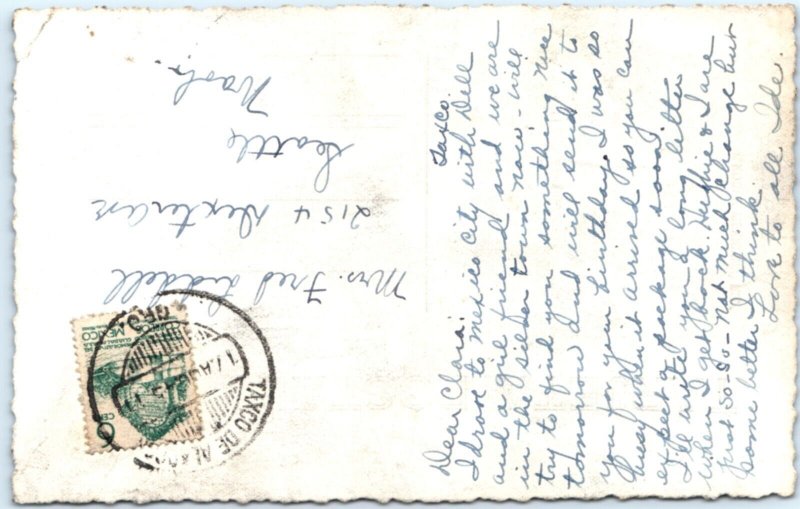 Taxco
Dear Clara:
I drove to Mexico City with Dell
and a girl friend and we are
in the silver town now - will
try to find you something nice
tomorrow and will send it to
you for your birthday. I was so
busy when it arrived so you can
expect a package soon.
I'll write you a long letter
when I get back. Hughie & I are
just so-so - not much change but
some better I think.
Love to all Ide.
Mrs. Fred Liddell
2154 Dexter Ave
Seattle
Wash.
TAXCO DE ALARCON
GRO.
MEXICO